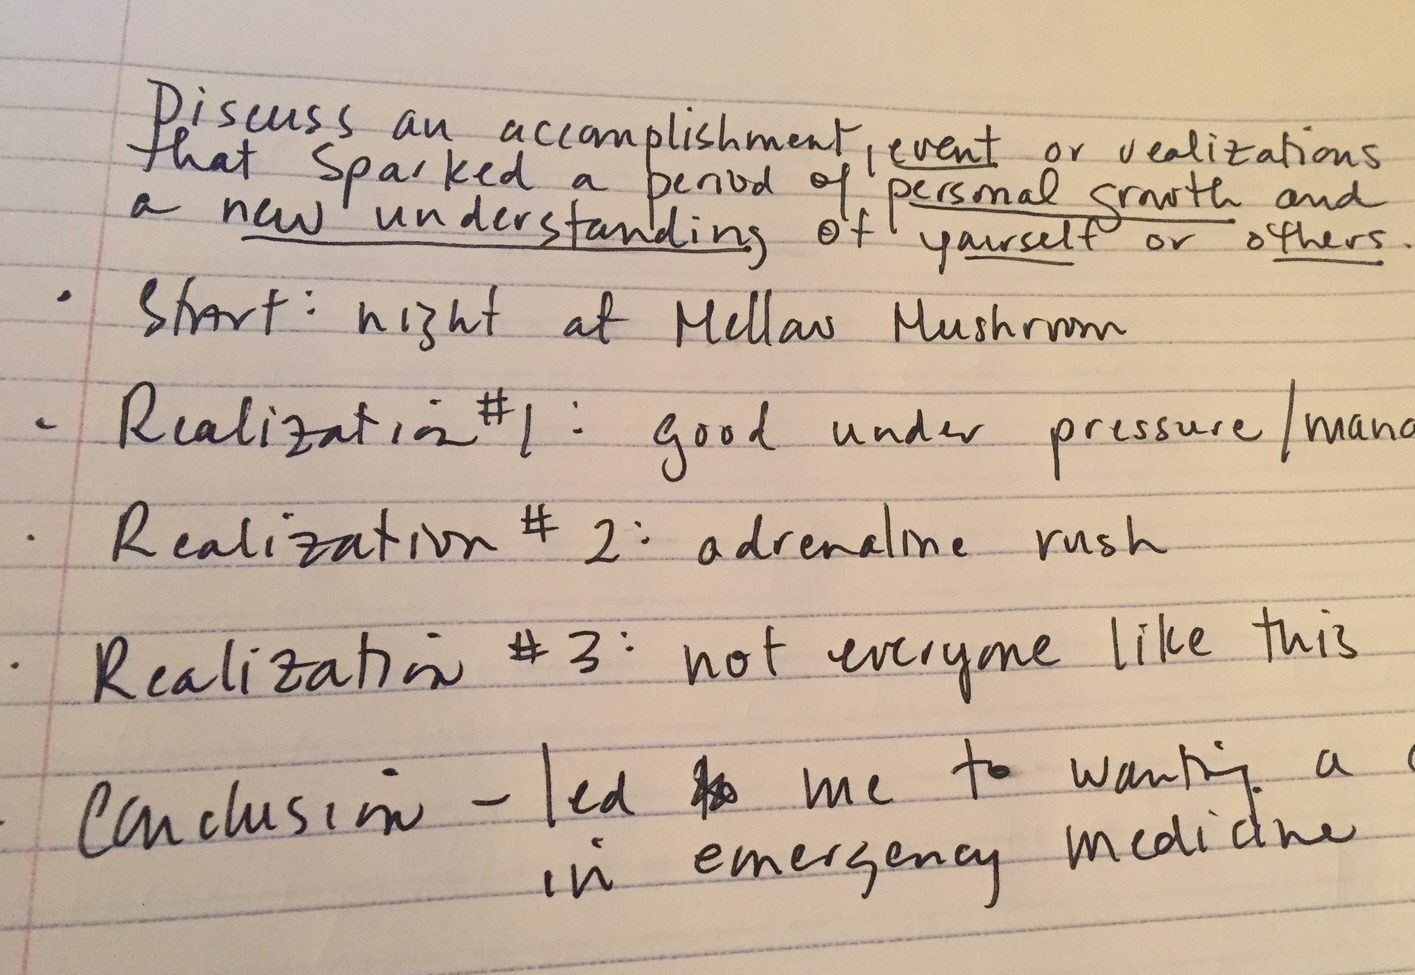 Discuss an accomplishment, event or realizations
that sparked a period of personal growth and
a new understanding of yourself or others.
• Start: night at Mellow Mushroom
- Realization #1: good under pressure/mana
· Realization # 2: adrenaline rush
· Realization # 3: not everyone like this
Conclusion - led me to wanting a
in emergency medicine